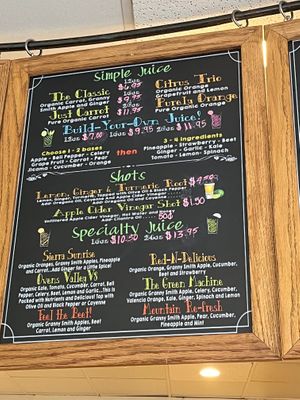 Simple Juice
12oz $6.95
16oz $9.95
The Classic
Organic Carrot, Granny
Smith Apple and Ginger
Citrus Trio
Organic Orange,
Grapefruit and Lemon
Just Carrot
Pure Organic Carrot
$11.95
Purely Orange
Pure Organic Orange
Build-Your-Own Juice!
12oz $7.60 16oz $9.95 $11.95
Choose 1 - 2 bases
Apple - Bell Pepper - Celery
Grape Fruit - Carrot - Pear
Jicama - Cucumber - Orange
then
3 - 4 ingredients
Pineapple - Strawberry - Beet
Ginger - Spinach - Kale
Tomato - Lemon - Spinach
Shots
Lemon, Ginger & Turmeric Root
Apple Cider Vinegar Shot $1.50
Unfiltered Apple Cider Vinegar, Hot Water and
50¢
Specialty Juice
12oz $10.50 16oz $13.95
Sierra Sunrise
Organic Oranges, Granny Smith Apples, Pineapple
and Carrot...Add Ginger for a little Spice!
Owens Valley V8
Organic Kale, Tomato, Cucumber, Carrot, Bell
Pepper, Celery, Beet, Lemon and Garlic...This is
Packed with Nutrients and Delicious! Top with
Olive Oil and Black Pepper or Cayenne
Feel the Beet!
Organic Granny Smith Apples, Beet
Carrot, Lemon and Ginger
Red-N-Delicious
Organic Orange, Granny Smith Apple, Cucumber,
Beet and Strawberry
The Green Machine
Organic Granny Smith Apple, Celery, Cucumber,
Valencia Orange, Kale, Ginger, Spinach and Lemon
Mountain Re-fresh
Organic Granny Smith Apples, Pear, Cucumber,
Pineapple and Mint